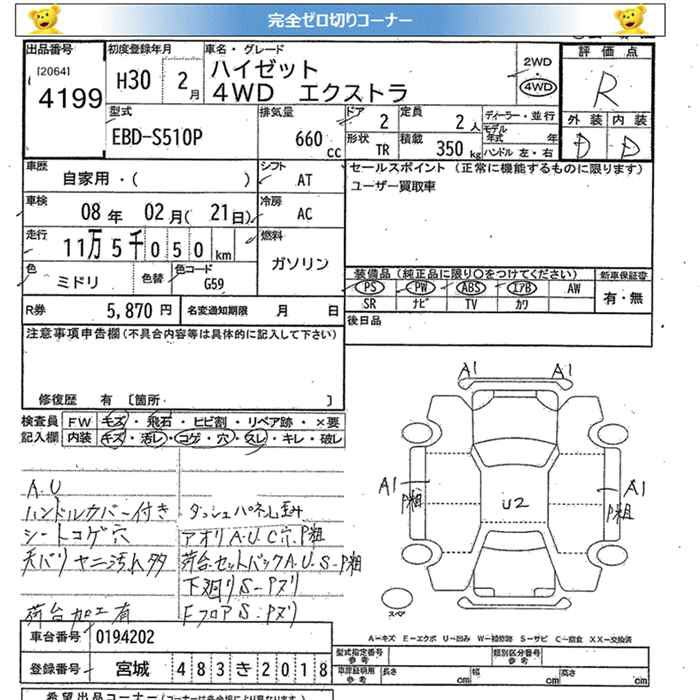 完全ゼロ切りコーナー
出品番号 初度登録年月 車名・グレード 評価点
[2064] 4199 H30 2月 ハイゼット 2WD
4WD エクストラ 4WD R
型式 排気量 ドア 定員 ディーラー・並行 外装 内装
EBD-S510P 660cc 2 2人 モデル年式 年 D D
形状 積載 ハンドル 左・右
TR 350kg
車歴 シフト セールスポイント (正常に機能するものに限ります)
自家用・( ) AT ユーザー買取車
車検 冷房
08年 02月( 21日) AC
走行 燃料
11万5千050km ガソリン
色 色替 色コード 装備品(純正品に限り○をつけてください) 新車保証書
ミドリ G59 PS PW ABS エアB AW 有・無
SR ナビ TV カワ
R券 5,870円 名変通知期限 月 日 後日品
注意事項申告欄(不具合内容等は具体的に記入して下さい)
修復歴 有 [箇所 ]
検査員 FW キズ・飛石・ヒビ割・リペア跡・×要
記入欄 内装 キズ・汚レ・コゲ・穴・スレ・キレ・破レ
A1 A1
A1 P粗 U2 A1 P粗
A.U
ハンドルカバー付き ダッシュパネル歪み
シートコゲ穴 アオリA.U.C穴.P粗
天バリヤニ汚れ多 荷台セットバックA.U.S-P粗
下廻りS-Pヌリ
荷台加工有 FフロアS:Pヌリ
スペア
車台番号 0194202
A―キズ E―エクボ U―凹み W―補修跡 S―サビ C―腐食 XX―交換済
登録番号 宮城 483き2018
型式指定番号 参考 類別区分番号 参考
車検証記載 参考 長さ cm 幅 cm 高さ cm
希望出品コーナー